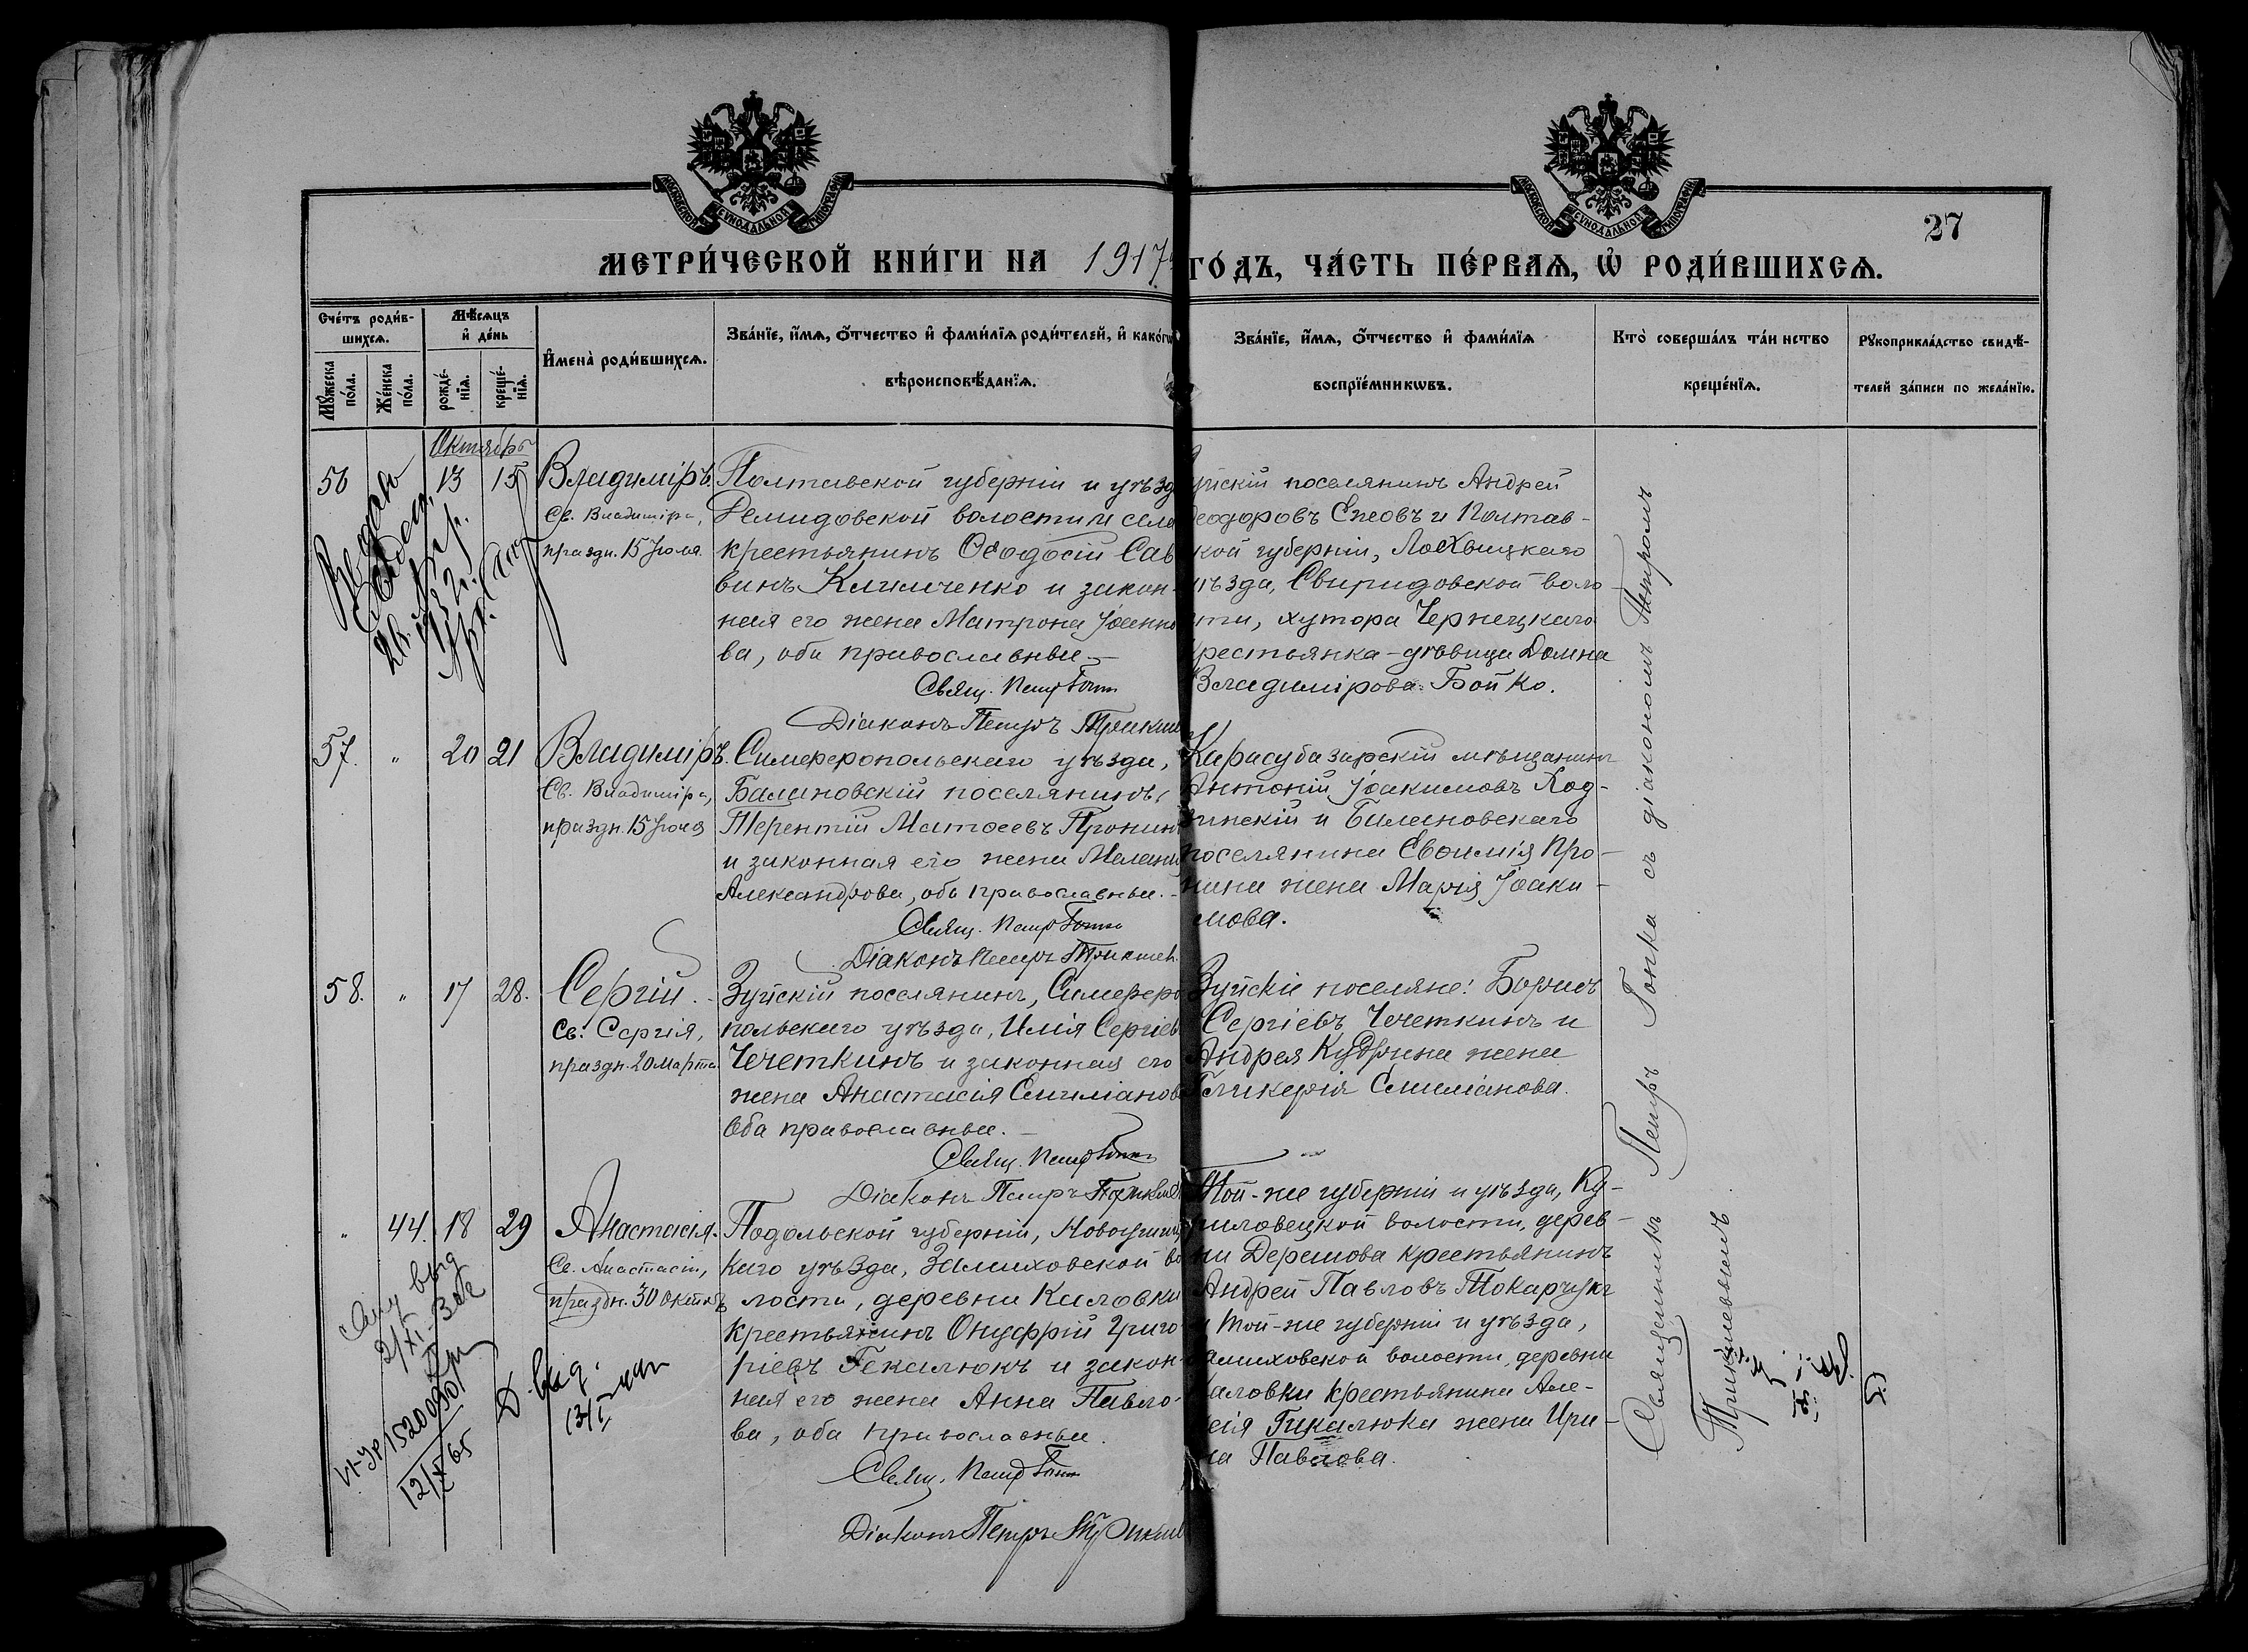 МОСКОВСКОЙ СѴНОДАЛЬНОЙ ТИПОГРАФІИ
МОСКОВСКОЙ СѴНОДАЛЬНОЙ ТИПОГРАФІИ
27
МЕТРИ́ЧЕСКОЙ КНИ́ГИ НА 1917 ГО́ДЪ, ЧА́СТЬ ПЕ́РВАѦ, Ѡ҆ РОДИ́ВШИХСѦ.
Сче́тъ роди́в-
шихсѧ.
Мꙋ́жеска по́ла.
Же́нска по́ла.
Мѣ́сѧцъ
и҆ де́нь
рожде́-
нїѧ.
креще́-
нїѧ.
И҆мена̀ роди́вшихсѧ.
Зва́нїе, и҆́мѧ, ѻ҆́тчество и҆ фами́лїѧ роди́телей, и҆ како́гѡ
вѣроисповѣ́данїѧ.
Зва́нїе, и҆́мѧ, ѻ҆́тчество и҆ фами́лїѧ
воспрїе́мникѡвъ.
Кто̀ соверша́лъ та́инство
креще́нїѧ.
Рꙋкоприкла́дство свидѣ́-
телей за́писи по жела́нїю.
Октябрь
56 13 15 Владиміръ.
Св. Владиміра,
праздн. 15 Іюля.
Полтавской губерніи и уѣзда
Демидовской волости и села
крестьянинъ Ѳеодосій Сав
винъ Климченко и закон-
ная его жена Матрона Іоанно
ва, оба православные.—
Свящ. Петр Гопка
Діаконъ Петръ
уйскій поселянинъ Андрей
еодоровъ Ежовъ и Полтав-
кой губерніи, Лохвицкаго
уѣзда, Свиридовской воло
сти, хутора Чернецкаго
рестьянка-дѣвица Домна
Владимірова Бойко.
57. " 20 21 Владиміръ.
Св. Владиміра,
праздн. 15 Іюля
Симферопольскаго уѣзда,
Балановскій поселянинъ,
Терентій Матѳеевъ Пронинъ
и законная его жена Меланія
Александрова, оба православные.-
Свящ. Петр Гопка
Діаконъ Петръ
Карасубазарскій мѣщанинъ
Антоній Іоакимовъ Ход-
зинскій и Балановскаго
поселянина Евѳимія Про-
нина жена Марія Іоаки-
мова.
58. " 17 28. Сергій.
Св. Сергія,
праздн. 20 Марта.
Зуйскій поселянинъ, Симферо
польскаго уѣзда, Илія Сергіев
Чечеткинъ и законная его
жена Анастасія Симіанова
оба православные.—
Свящ. Петр Гопка
Діаконъ Петръ
Зуйскіе поселяне: Борисъ
Сергіевъ Чечеткинъ и
Андрея Кудрина жена
Гликерія Симіанова.
" 44. 18 29 Анастасія.
Св. Анастасіи,
праздн. 30 Октябр
Подольской губерніи, Новоушиц
каго уѣзда, Замиховской во
лости, деревни Каловки
крестьянинъ Онуфрій Григо
ріевъ Гекалюкъ и закон-
ная его жена Анна Павло-
ва, оба православные.
Свящ. Петр Гопка
Діаконъ Петръ
Той-же губерніи и уѣзда, Ку-
риловецкой волости, дерев-
ни Дерешова крестьянинъ
Андрей Павловъ Токарчукъ
и той-же губерніи и уѣзда,
амиховской волости, деревни
аловки крестьянина Але-
сія Гикалюка жена Ири-
на Павлова.
Священникъ Петръ Гопка съ діакономъ Петромъ